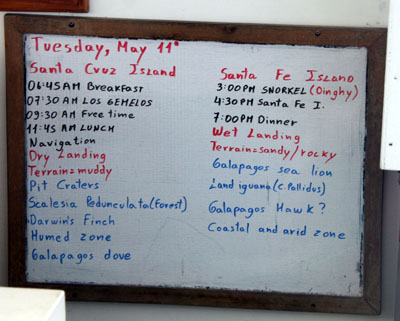 Tuesday, May 11°
Santa Cruz Island
06:45 AM Breakfast
07:30 AM LOS GEMELOS
09:30 AM Free time
11:45 AM LUNCH
Navigation
Dry Landing
Terrain=muddy
Pit Craters
Scalesia Pedunculata(Forest)
Darwin's Finch
Humed zone
Galapagos dove
Santa Fe Island
3:00PM SNORKEL (Dinghy)
4:30PM Santa Fe I.
7:00PM Dinner
Wet Landing
Terrain=sandy/rocky
Galapagos sea lion
Land iguana (C. Pallidos)
Galapagos Hawk?
Coastal and arid zone